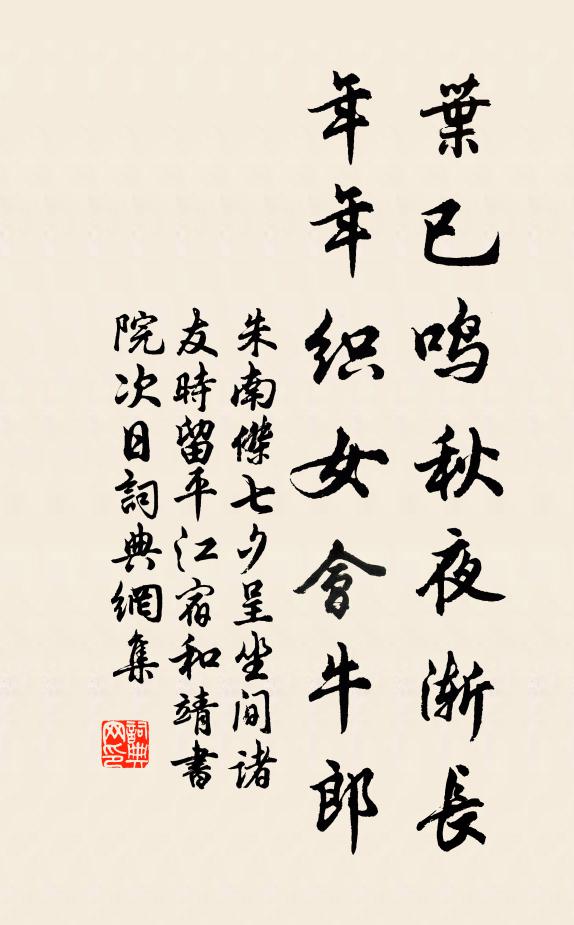 葉已鸣秋夜渐長
年年织女會牛郎
朱南傑七夕呈坐间諸
友時留平江宿和靖書
院次日詞典網集
詞典网印